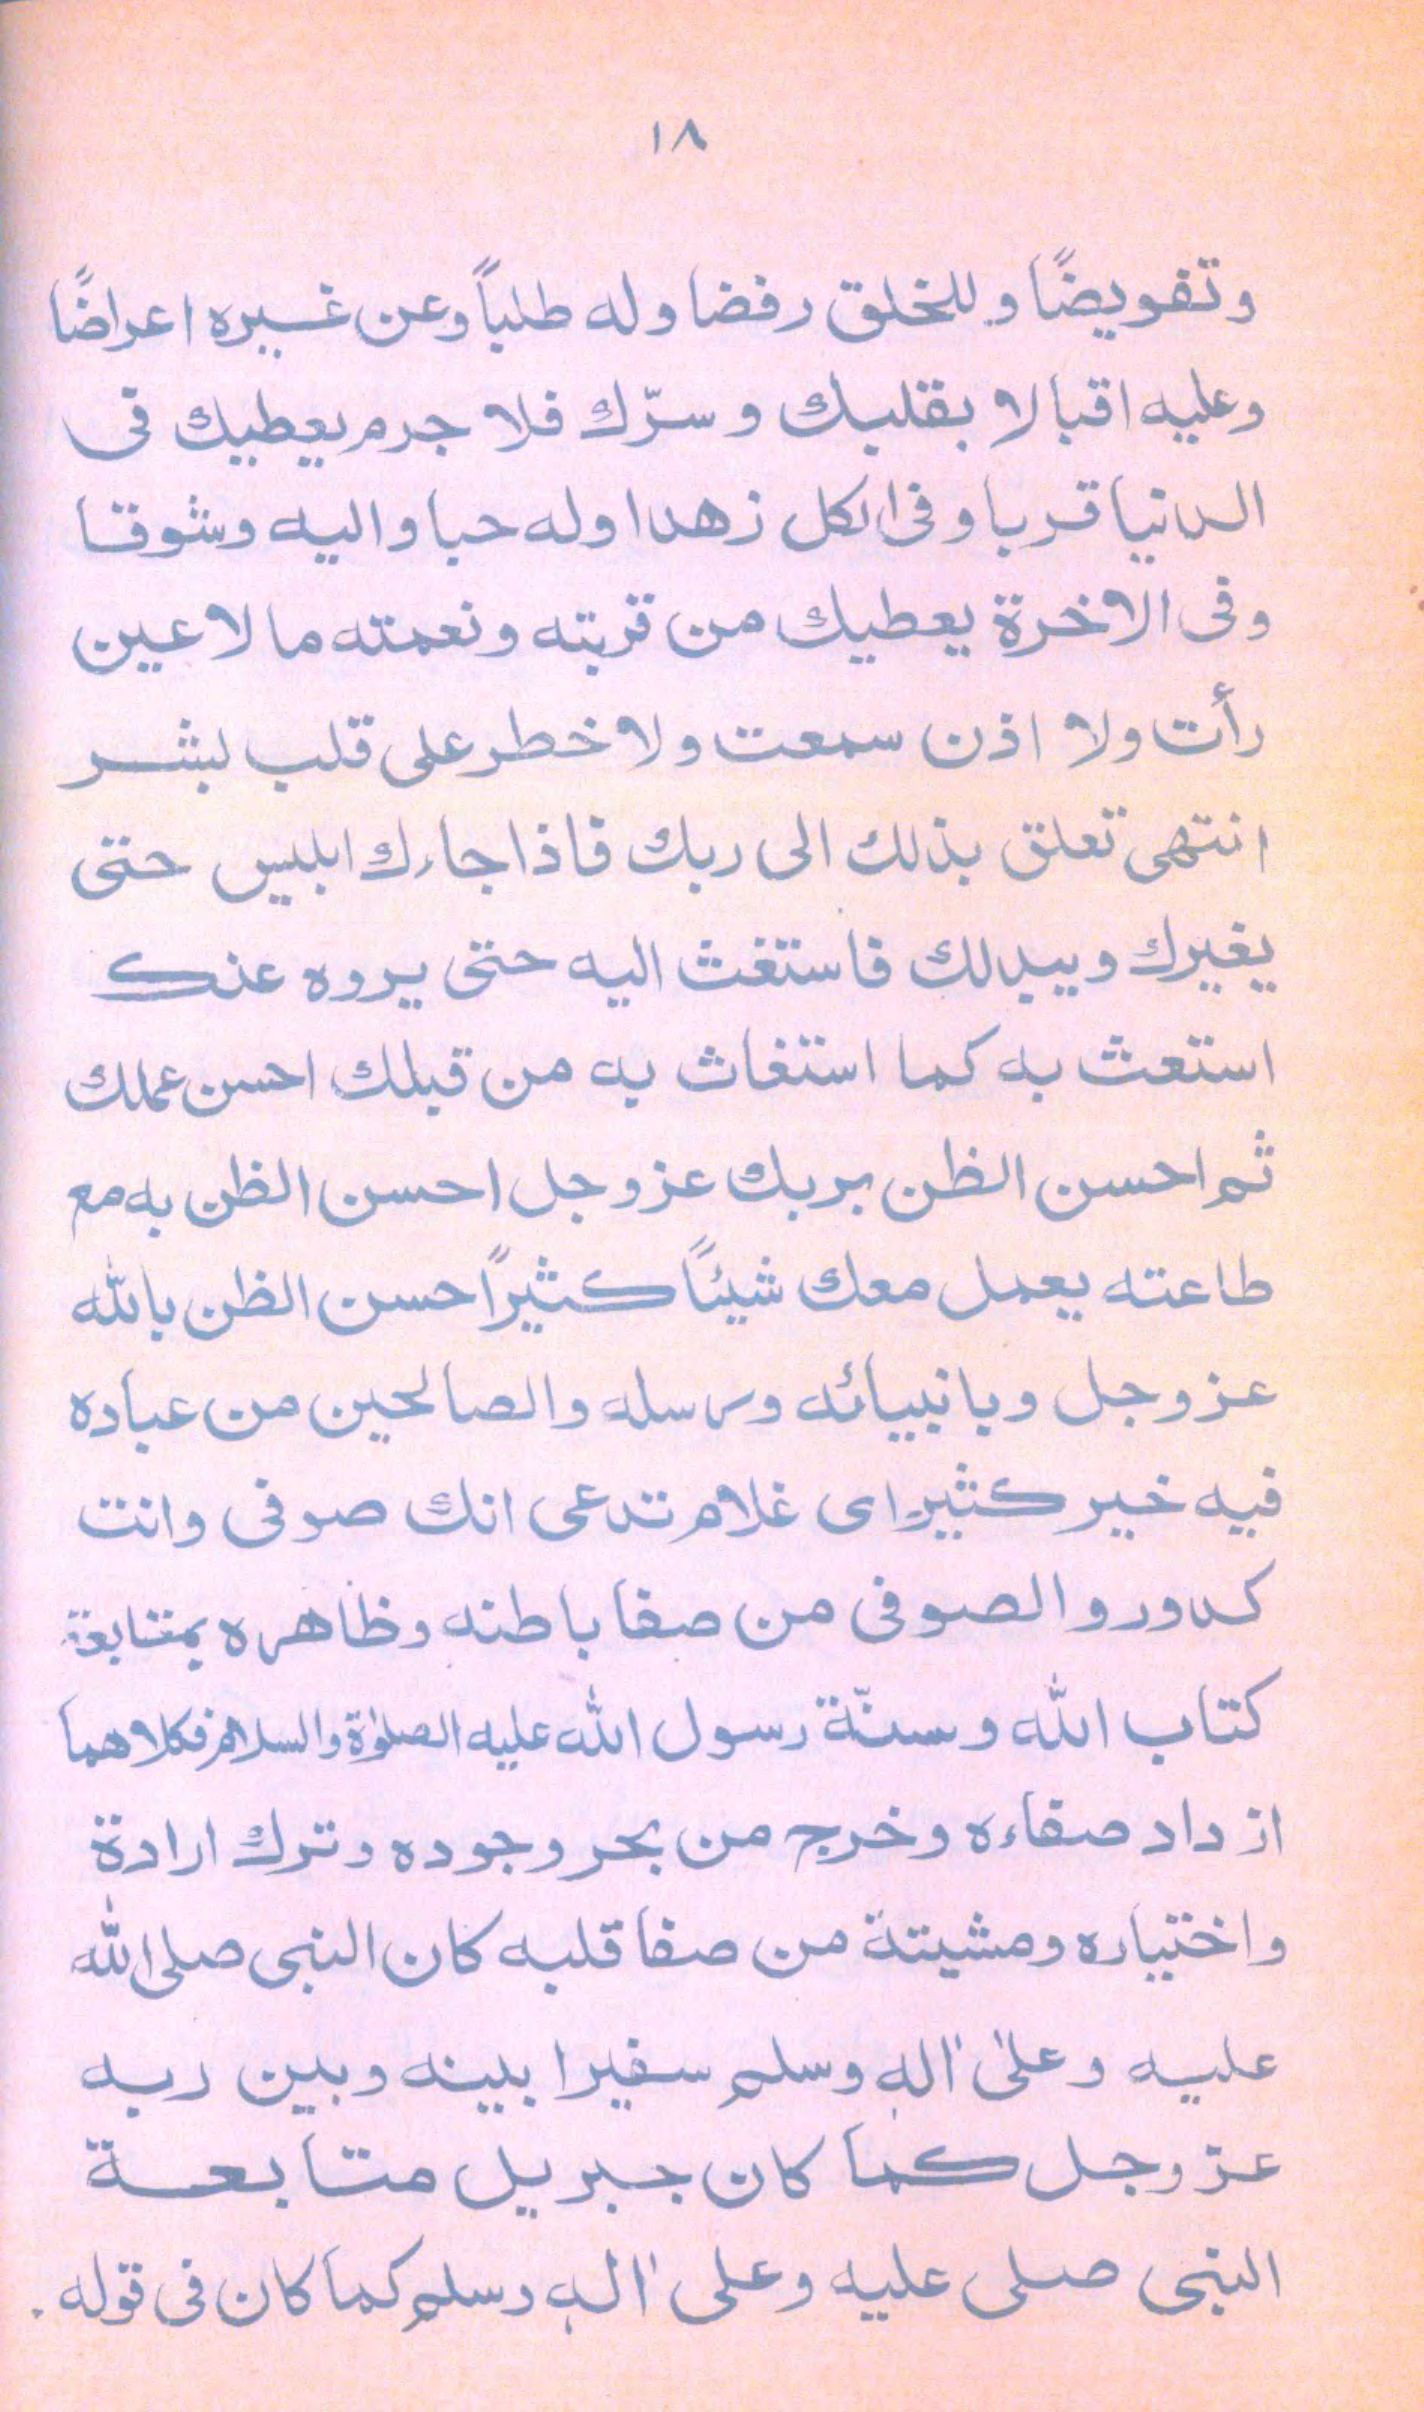 ١٨
وتفويضًا وللخلق رفضا وله طلباً وعن غيره اعراضًا
وعليه اقبالا بقلبك وسرّك فلا جرم يعطيك فى
الدنيا قربا وفى الكل زهدا وله حبا واليه وشوقا
وفى الاخرة يعطيك من قربته ونعمته ما لا عين
رأت ولا اذن سمعت ولا خطر على قلب لبشر
انتهى تعلق بذلك الى ربك فاذا جاءك ابليس حتى
يغيرك ويبدلك فاستغث اليه حتى يروه عنك
استعث به كما استغاث به من قبلك احسن عملك
ثم احسن الظن بربك عز وجل احسن الظن به مع
طاعته يعمل معك شيئاً كثيراً حسن الظن بالله
عز وجل وبانبيائه ورسله والصالحين من عباده
فيه خير كثير اى غلام تدعى انك صوفى وانت
كدور والصوفى من صفا باطنه وظاهره بمتابعة
كتاب الله وسنّة رسول الله عليه الصلوٰة والسلام فكلاهما
ازداد صفاءه وخرج من بحر وجوده وترك ارادة
واختياره ومشيتة من صفا قلبه كان النبى صلى الله
عليه وعلىٰ اٰله وسلم سفيرا بينه وبين ربه
عز وجل كما كان جبريل متابعة
النبى صلى عليه وعلى اٰله وسلم كما كان فى قوله